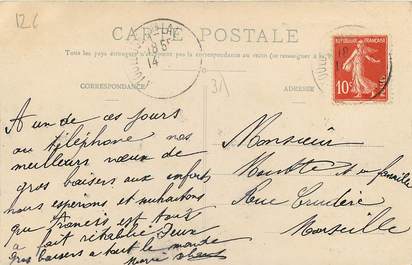 126
CARTE POSTALE
Tous les pays étrangers n'acceptent pas la correspondance au recto (se renseigner à la
CORRESPONDANCE
ADRESSE
31
18
14
RÉPUBLIQUE FRANÇAISE
10c
A un de ces jours
au téléphone nos
meilleurs vœux de
gros baisers aux enfants
nous esperons et souhaitons
que Francis est tout
a fait rétablie Deux
Gros baisers a tout le monde
Monsieur
et famille
Rue
Marseille